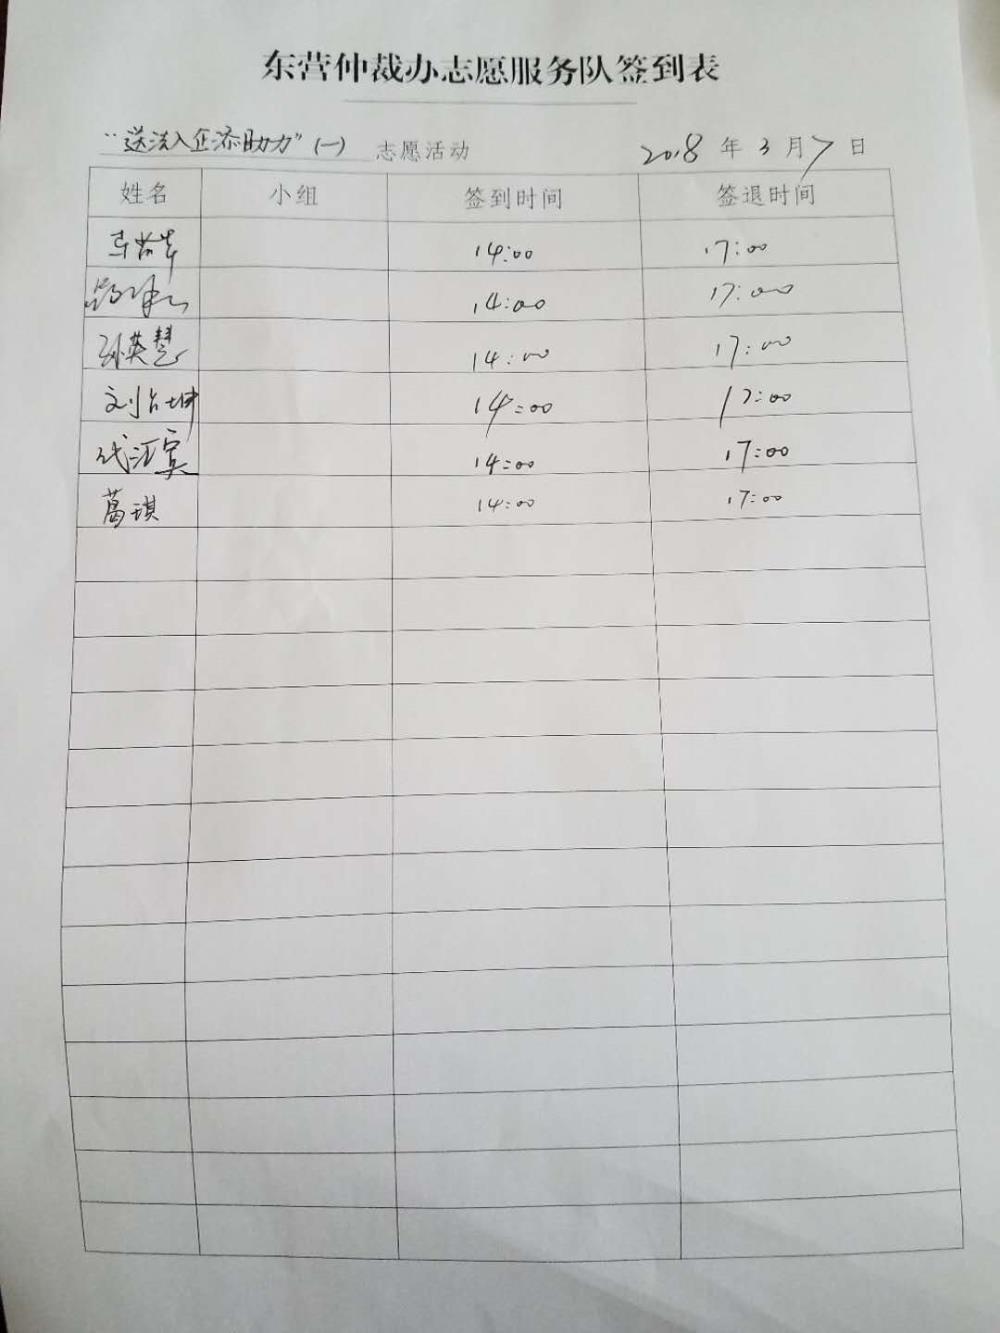 东营仲裁办志愿服务队签到表
“送法入企添助力”(一) 志愿活动 2018 年 3 月 7 日
姓名 小组 签到时间 签退时间
14:00 17:00
14:00 17:00
孙英慧 14:00 17:00
14:00 17:00
14:00 17:00
葛琪 14:00 17:00